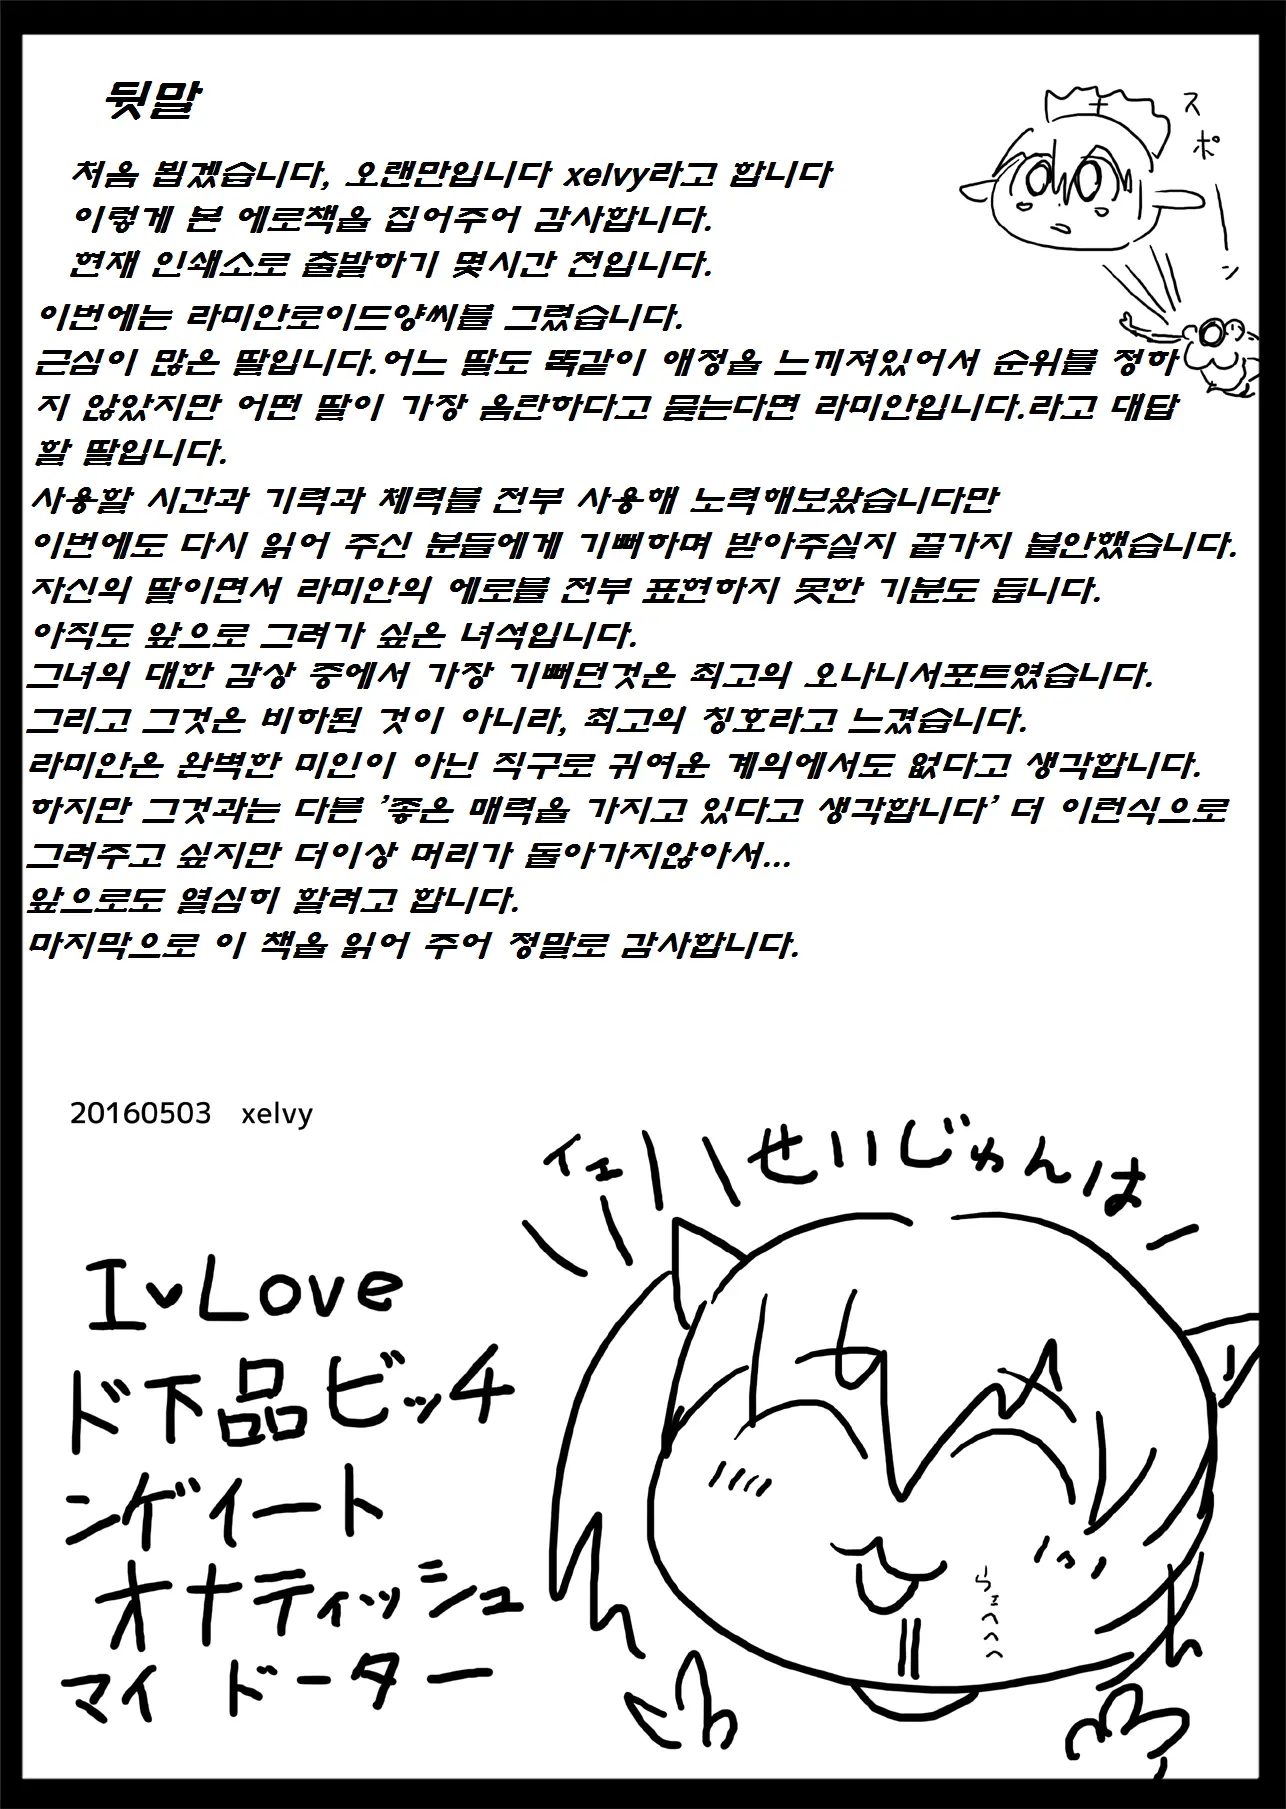 뒷말
처음 뵙겠습니다, 오랜만입니다 xelvy라고 합니다
이렇게 본 에로책을 집어주어 감사합니다.
현재 인쇄소로 출발하기 몇시간 전입니다.
이번에는 라미안로이드양씨를 그렸습니다.
근심이 많은 딸입니다.어느 딸도 똑같이 애정을 느끼져있어서 순위를 정하
지 않았지만 어떤 딸이 가장 음란하다고 묻는다면 라미안입니다.라고 대답
할 딸입니다.
사용할 시간과 기력과 체력를 전부 사용해 노력해보왔습니다만
이번에도 다시 읽어 주신 분들에게 기뻐하며 받아주실지 끝가지 불안했습니다.
자신의 딸이면서 라미안의 에로를 전부 표현하지 못한 기분도 듭니다.
아직도 앞으로 그려가 싶은 녀석입니다.
그녀의 대한 감상 중에서 가장 기뻐던것은 최고의 오나니서포트였습니다.
그리고 그것은 비하된 것이 아니라, 최고의 칭호라고 느겼습니다.
라미안은 완벽한 미인이 아닌 직구로 귀여운 계의에서도 없다고 생각합니다.
하지만 그것과는 다른 '좋은 매력을 가지고 있다고 생각합니다' 더 이런식으로
그려주고 싶지만 더이상 머리가 돌아가지않아서...
앞으로도 열심히 할려고 합니다.
마지막으로 이 책을 읽어 주어 정말로 감사합니다.
スポーン
20160503 xelvy
イエ
せいじゅんは
I♥Love
ド下品ビッチ
ンゲイート
オナティッシュ
マイ ドーター
へへへ